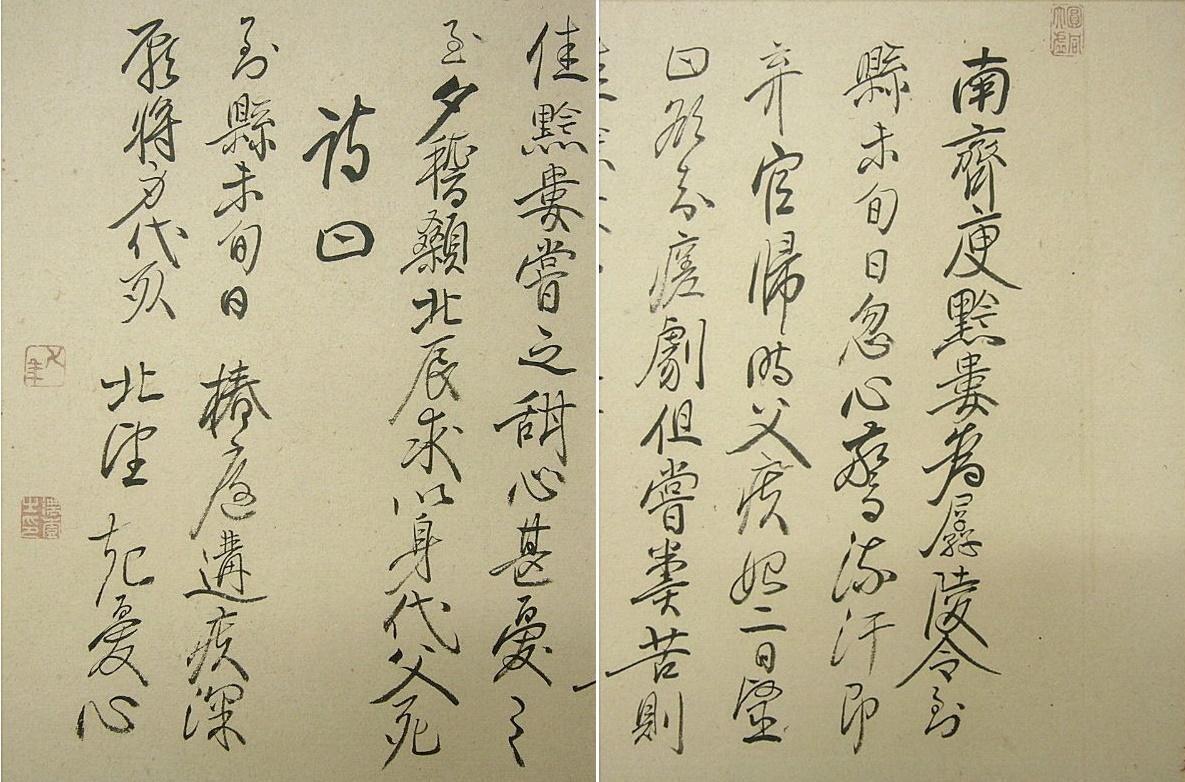 南齊庾黔婁為孱陵令到
縣未旬日忽心驚流汗即
弃官歸時父疾始二日醫
曰欲知瘥劇但嘗糞苦則
佳黔婁嘗之甜心甚憂之
至夕稽顙北辰求以身代父死
詩曰
到縣未旬日 椿庭遘疾深
願將身代死 北望起憂心